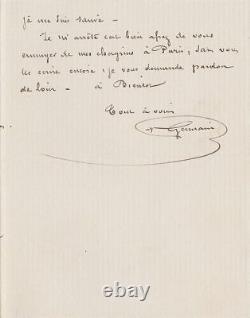 je me suis sauvé –
Je m'arrête car bien assez de vous
ennuyer de mes chagrins à Paris, sans vous
les écrire encore; je vous demande pardon
de loin – à Bientôt
Tout à vous
Germain